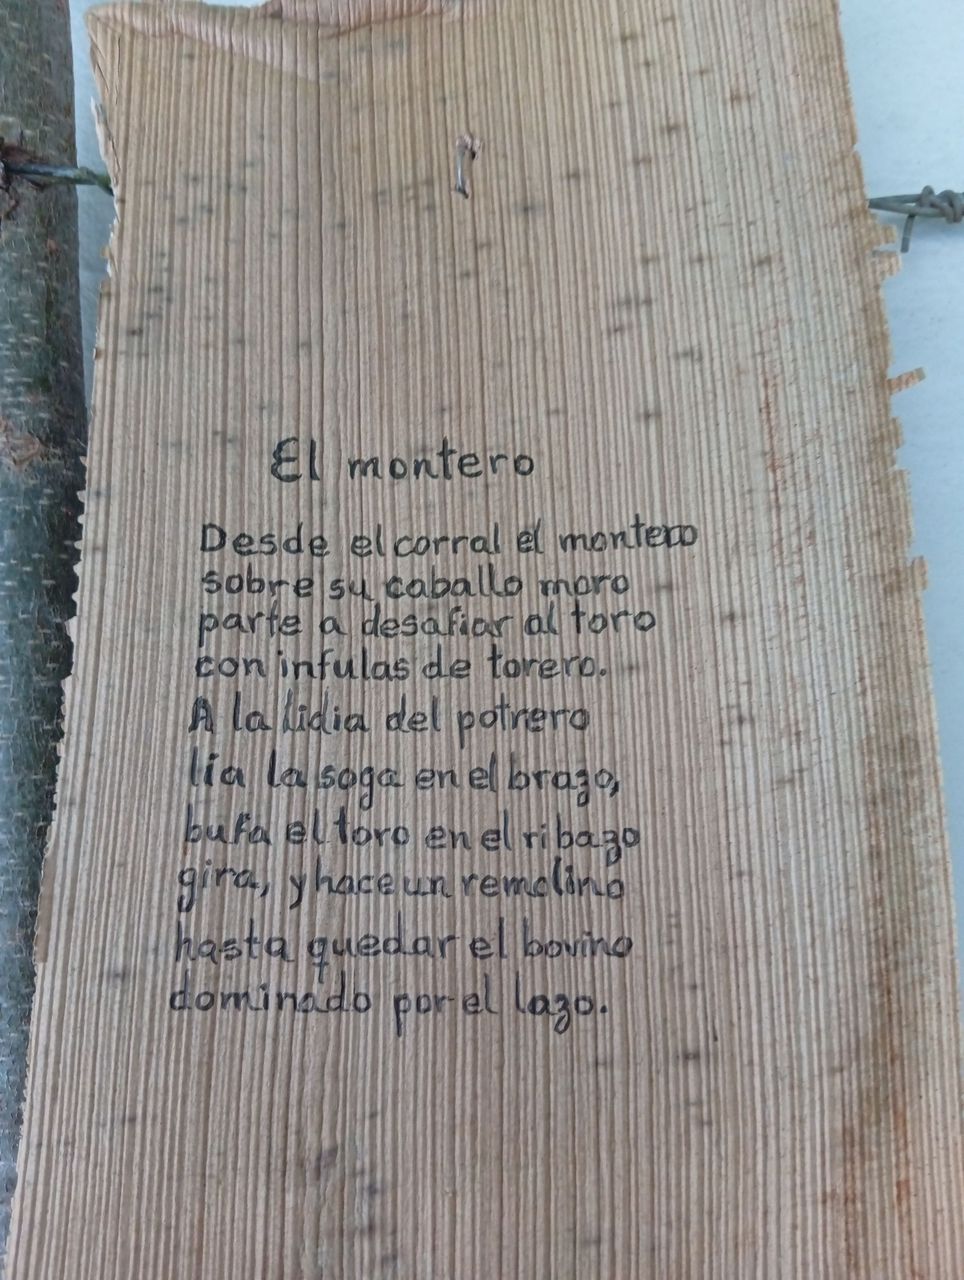 El montero
Desde el corral el montero
sobre su caballo moro
parte a desafiar al toro
con infulas de torero.
A la lidia del potrero
lía la soga en el brazo,
bufa el toro en el ribazo
gira, y hace un remolino
hasta quedar el bovino
dominado por el lazo.